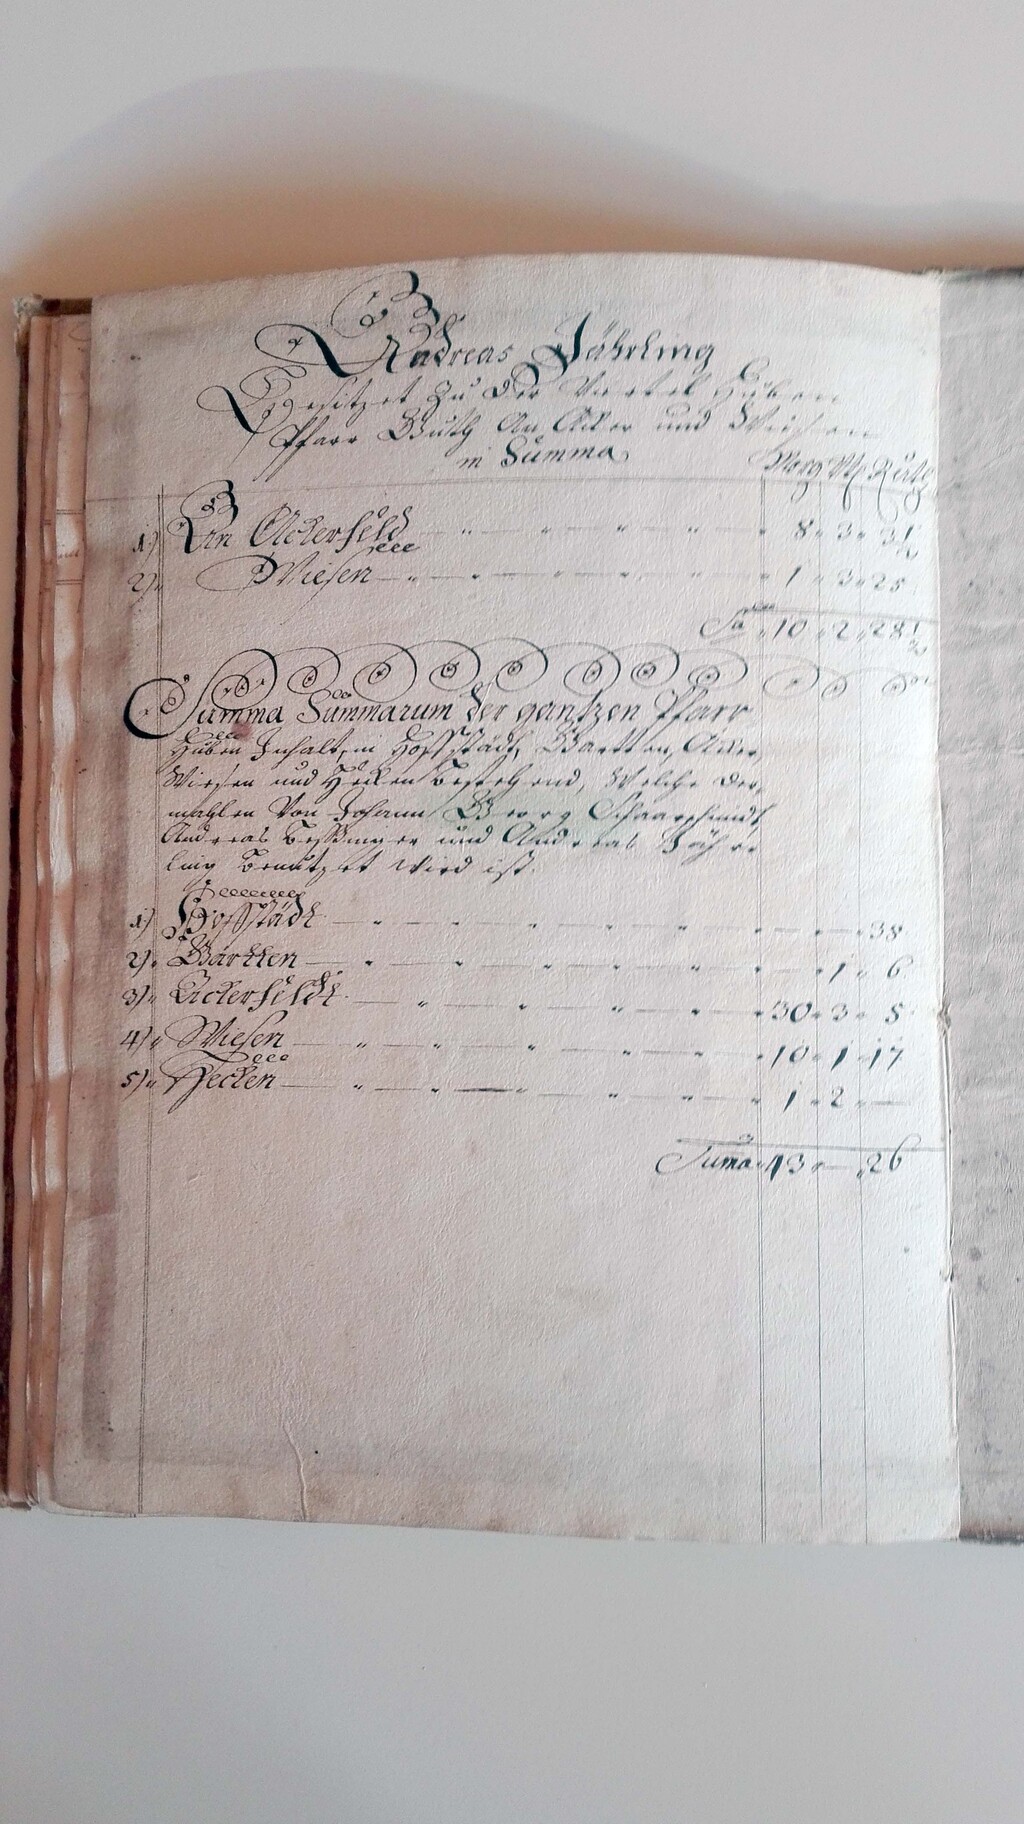 Andreas Jährling
Besitzet Zu der Viertel Huben
Pfarr Guth An Acker und Wiesen
in Summa
Morg Vl Ruth
1) An Ackerfeld 8 3 3 1/2
2) Wiesen 1 3 25
Sa 10 2 28 1/2
Summa Summarum der gantzen Pfarr
Huben Inhalt, in Hoffstädt, Gartten, Acker,
Wiesen und Hecken bestehend, Welche der,
mahlen Von Johann Georg Schaarschmidt,
Andreas und Andreas Jähr=
ling benutzet wird ist.
1) Hoffstädt 38
2) Gärtten 1 6
3) Ackerfeldt 30 3 5
4) Wiesen 10 1 17
5) Hecken 1 2 —
Suma 43 — 26